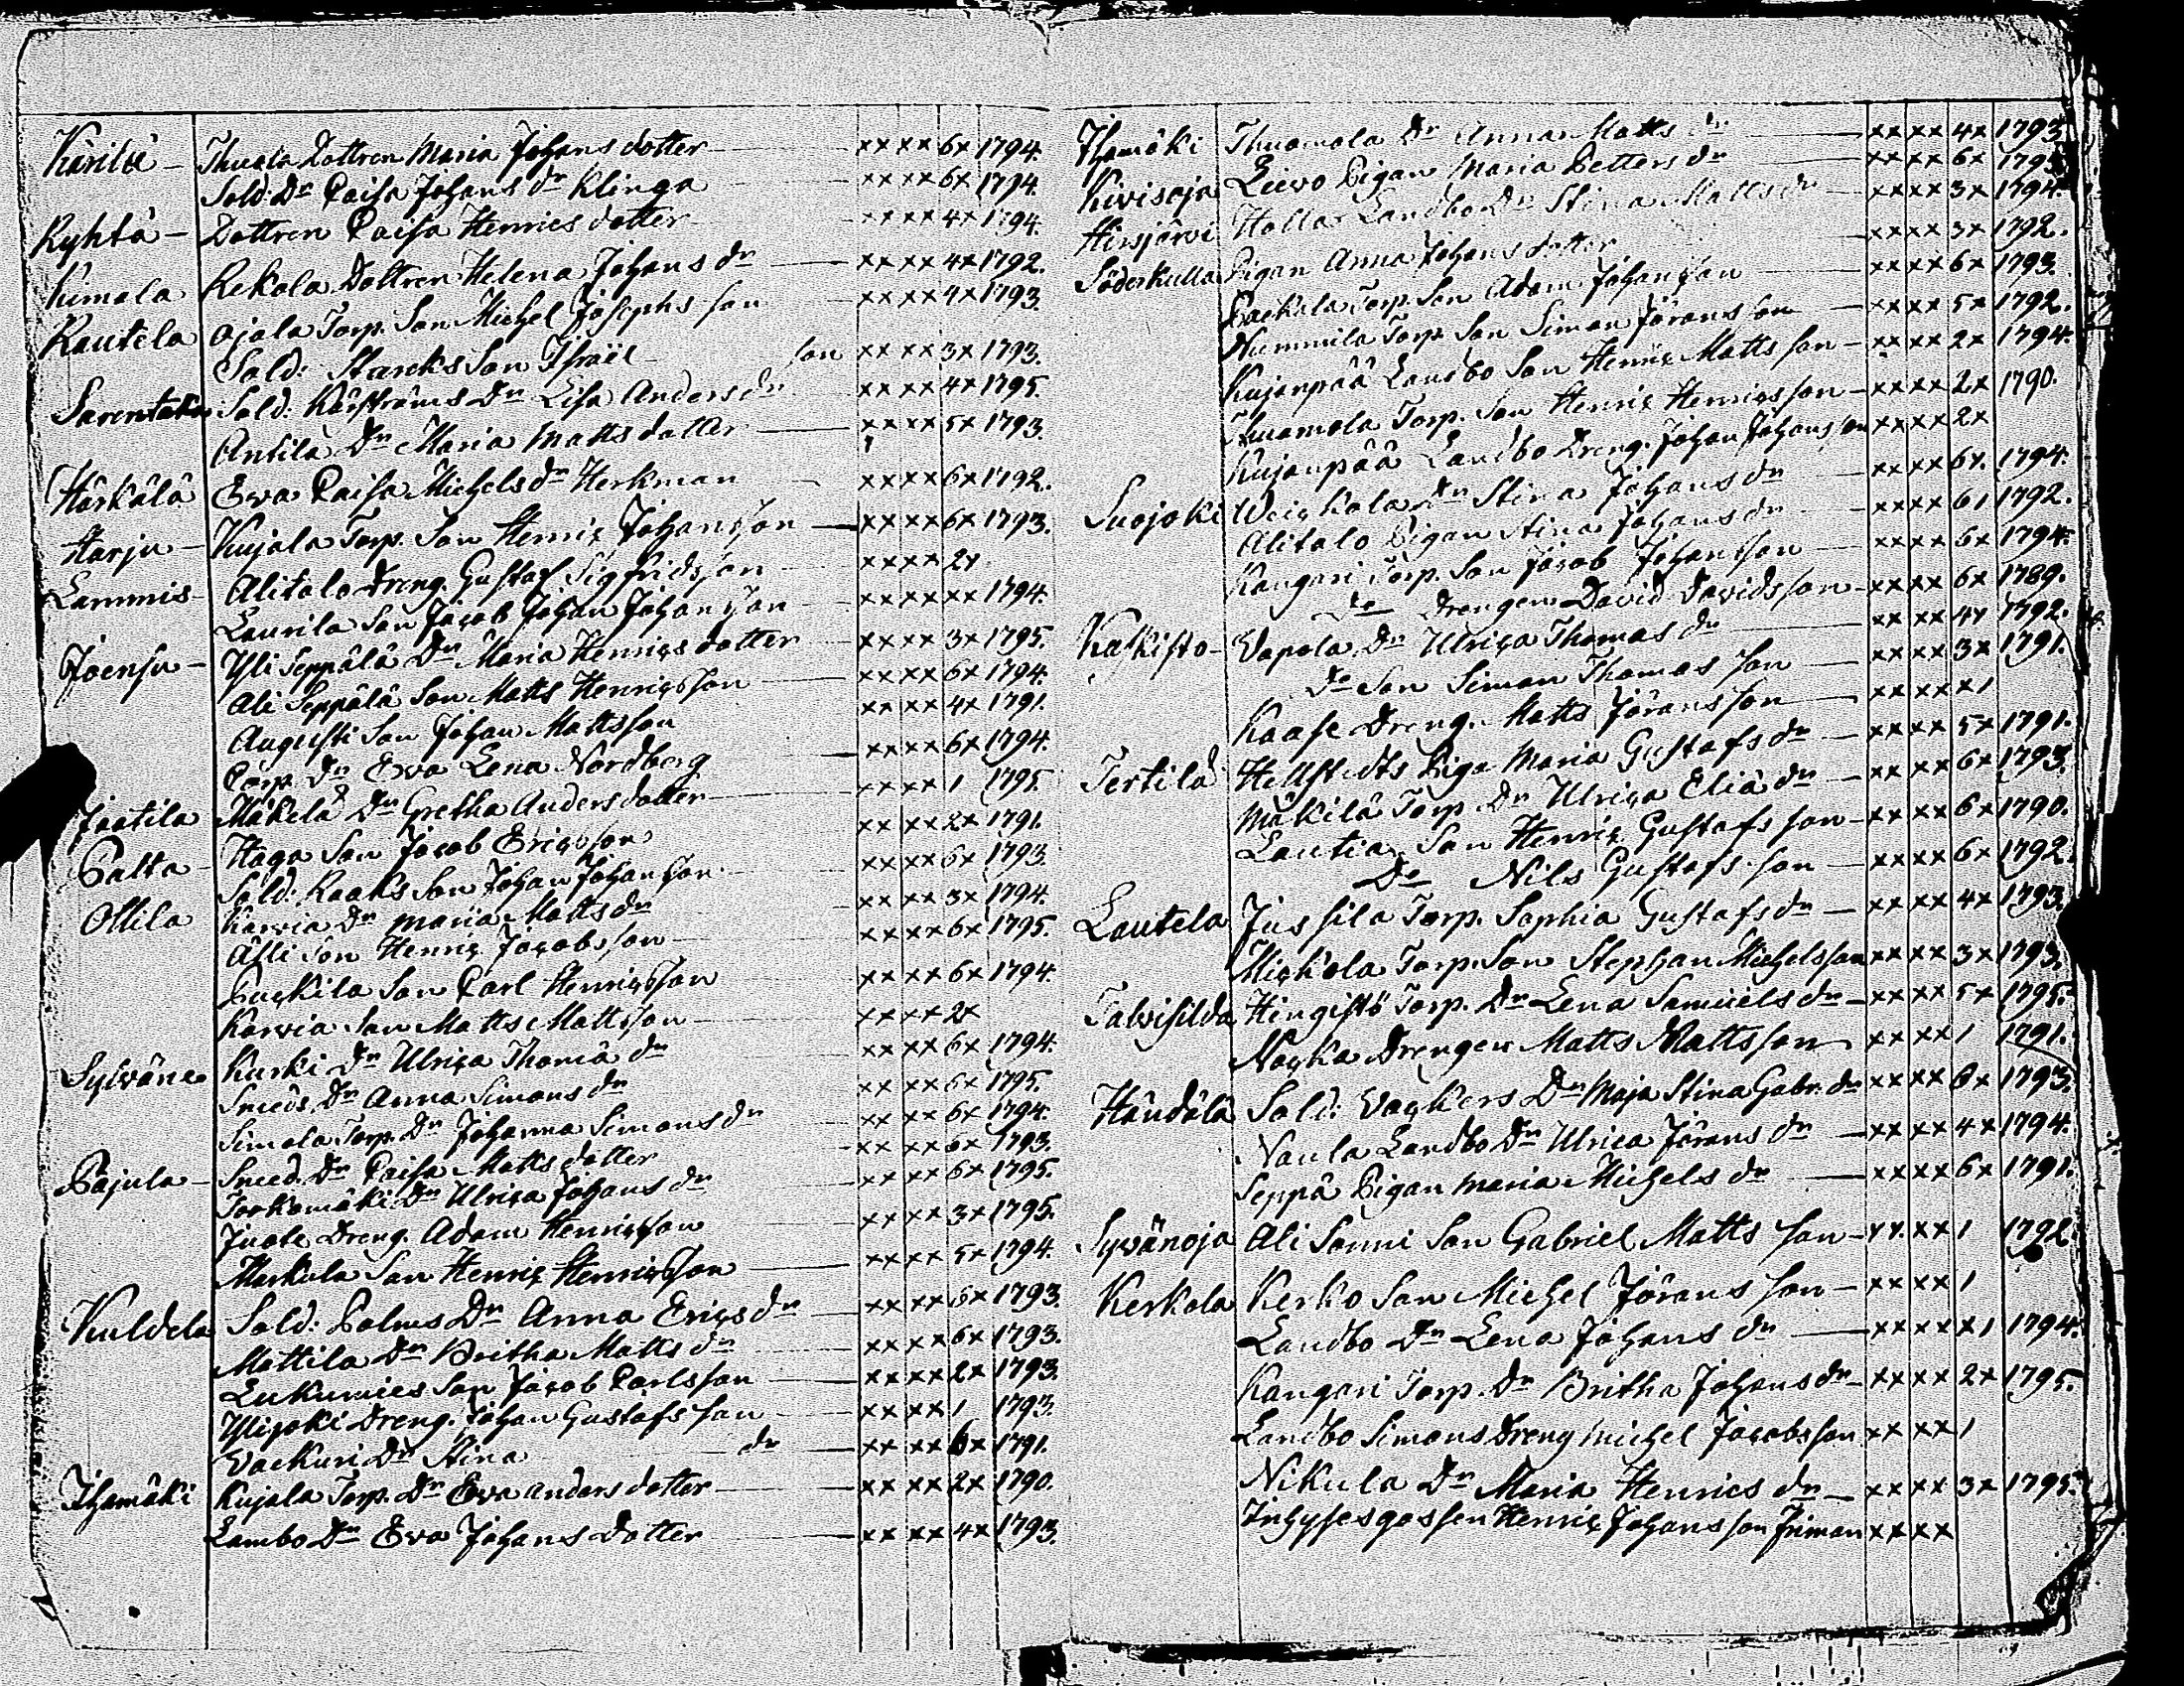 Thuola Dottren Maria Johans dotter xx xx 6x 1794.
Sold: Dr Caisa Johans dr Klinga xx xx 6x 1794.
Kyhtä - Dottren Caisa Henrics dotter xx xx 4x 1794.
Kimala Rekola Dottren Helena Johans dr xx xx 4x 1792.
Rautela Ojala Torp. Son Michel Josephs son xx xx 4x 1793.
Sold: Starcks Son Israel son xx xx 3x 1793.
Sarentaka Sold: Kärströms Dr Lisa Anders dr xx xx 4x 1795.
Antila Dr Maria Matts dotter xx xx 5x 1793.
Härkälä Ewa Caisa Michels dr Herkman xx xx 6x 1792.
Harju - Kujala Torp. Son Henric Johansson xx xx 6x 1793.
Lammis - Alitalo Dreng. Gustaf Sigfridsson xx xx 2x
Laurila Son Jacob Johan Johansson xx xx xx 1794.
Joensu - Yli Seppälä Dr Maria Henrics dotter xx xx 3x 1795.
Ali Seppälä Son Matts Henricsson xx xx 6x 1794.
Augusti Son Johan Mattsson xx xx 4x 1791.
Corp. Dr Eva Lena Nordberg xx xx 6x 1794.
Jaatila Mäkelä Dr Gretha Anders dotter xx xx 1 1795.
Palta - Haga Son Jacob Ericsson xx xx 2x 1791.
Sold: Raaks Son Johan Johansson xx xx 6x 1793.
Ollila Karvia Dr Maria Matts dr xx xx 3x 1794.
Alli Son Henric Jacobsson xx xx 6x 1795.
Puckila Son Carl Henricsson xx xx 6x 1794.
Karvia Son Matts Mattsson xx xx 2x
Sylvänä Kurki Dr Ulrica Thomä dr xx xx 6x 1794.
Smeds Dr Anna Simons dr xx xx 6x 1795.
Simola Torp. Dr Johanna Simons dr xx xx 6x 1794.
Pajula - Smed. Dr Caisa Matts dotter xx xx 6x 1793.
Torkomäki Dr Ulrica Johans dr xx xx 6x 1795.
Juola Dreng. Adam Henricsson xx xx 3x 1795.
Markula Son Henric Henricsson xx xx 5x 1794.
Kuldela Sold: Palms Dr Anna Erics dr xx xx 5x 1793.
Mattila Dr Britha Matts dr xx xx 6x 1793.
Lukumies Son Jacob Carlsson xx xx 2x 1793.
Ylijoki Dreng. Johan Gustafs son xx xx 1 1793.
Vaekuri Dr Stina dr xx xx 6x 1791.
Ihamäki Kujala Torp. Dr Eva Anders dotter xx xx 2x 1790.
Lambo Dr Eva Johans Dotter xx xx 4x 1793.
Ihamäki Thuomola Dr Anna Matts dr xx xx 4x 1793.
Kivisoja Lievo Pigan Maria Petters dr xx xx 6x 1793.
Hirsjärvi Halla Landbo Dr Stina Matts dr xx xx 3x 1794.
Söderkulla Pigan Anna Johans dotter xx xx 3x 1792.
Packala Torp. Son Adam Johansson xx xx 6x 1793.
Nummila Torp. Son Simon Jörans son xx xx 5x 1792.
Kujanpää Landbo Son Henric Matts son - xx xx 2x 1794.
Thuomola Torp. Son Henric Henricsson - xx xx 2x 1790.
Kujanpää Landbo Dreng. Johan Johans son xx xx 2x
Suojoki Weickola Dr Stina Johans dr xx xx 6x. 1794.
Alitalo Pigan Stina Johans dr xx xx 6 1 1792.
Kangari Torp. Son Jacob Johansson xx xx 6x 1794.
Do Drengen David Davidsson - xx xx 6x 1789.
Kalkisto - Vapola Dr Ulrica Thomas dr xx xx 4x 1792.
Do Son Simon Thomas son xx xx 3x 1791.
Kaase Dreng. Matts Jöransson xx xx x1
Tertilä Hellstedts Piga Maria Gustafs dr xx xx 5x 1791.
Mäkilä Torp. Dr Ulrica Eliä dr xx xx 6x 1793.
Lautia Son Henric Gustafs son - xx xx 6x 1790.
Do Nils Gustafs son xx xx 6x 1792.
Lautela Jussila Torp. Sophia Gustafs dr xx xx 4x 1793.
Mickola Torp. Son Stephan Michelsson xx xx 3x 1793.
Talvisilda Hingistö Torp. Dr Lena Samuels dr - xx xx 5x 1795.
Nocka Drengen Matts Mattsson xx xx 1 1791.
Händälä Sold: Vackers Dr Maja Stina Gabr. dr xx xx 6x 1793.
Naula Landbo Dr Ulrica Jörans dr xx xx 4x 1794.
Seppä Pigan Maria Michels dr xx xx 6x 1791.
Syvänoja Ali Sonni Son Gabriel Matts son - xx. xx 1 1792.
Kerkola Kerko Son Michel Jörans son - xx xx 1
Landbo Dr Lena Johans dr xx xx x1 1794.
Kangari Torp. Dr Britha Johans dr - xx xx 2x 1795.
Landbo Simons Dreng Michel Jacobsson xx xx 1
Nikula Dr Maria Henrics dr xx xx 3x 1795.
Inhyses gossen Henric Johansson Friman xx xx